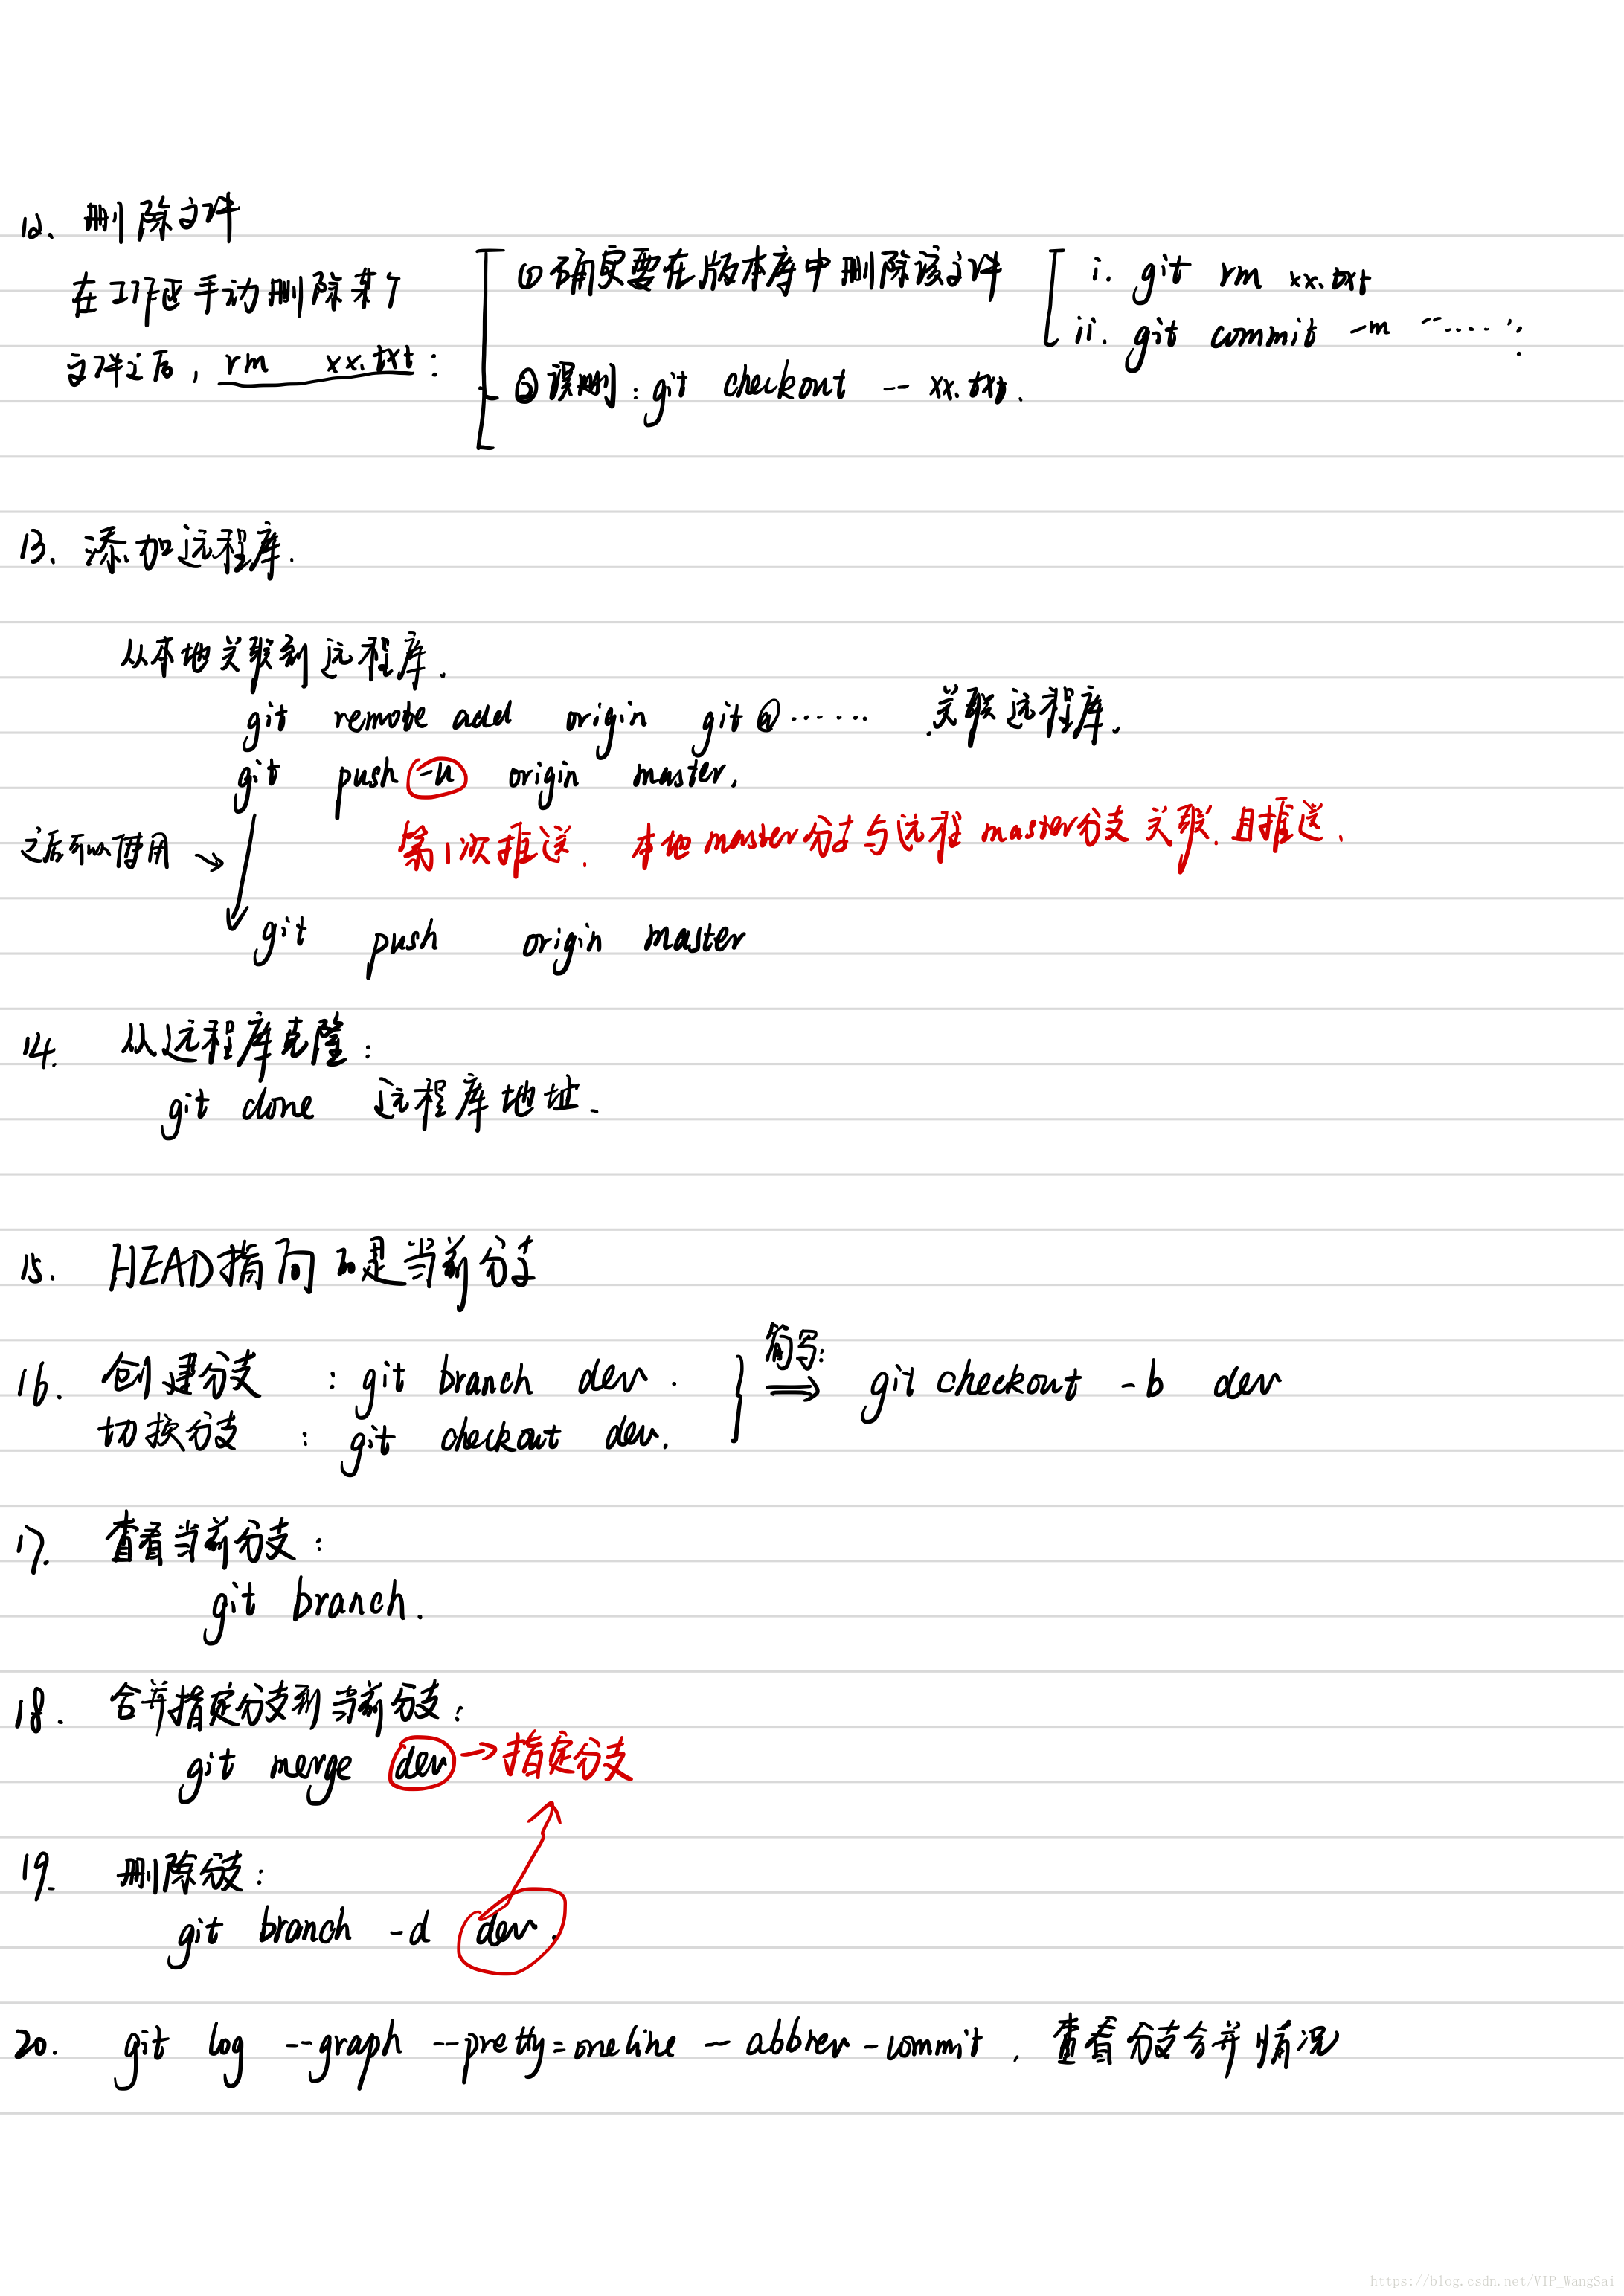 12. 删除文件
在工作区手动删除某个
文件之后, rm xx.txt:
① 确实要在版本库中删除该文件
i. git rm xx.txt
ii. git commit -m "······";
② 误删: git checkout -- xx.txt.
13. 添加远程库.
从本地关联到远程库.
git remote add origin git@······ 关联远程库.
git push -u origin master.
第1次推送. 本地master分支与远程master分支关联. 且推送.
之后可以使用 →
git push origin master
14. 从远程库克隆:
git clone 远程库地址.
15. HEAD指向的是当前分支
16. 创建分支 : git branch dev.
切换分支 : git checkout dev.
简写: ⇒ git checkout -b dev
17. 查看当前分支:
git branch.
18. 合并指定分支到当前分支:
git merge dev → 指定分支
19. 删除分支:
git branch -d dev.
20. git log --graph --pretty=oneline --abbrev-commit. 查看分支合并情况
https://blog.csdn.net/VIP_WangSai